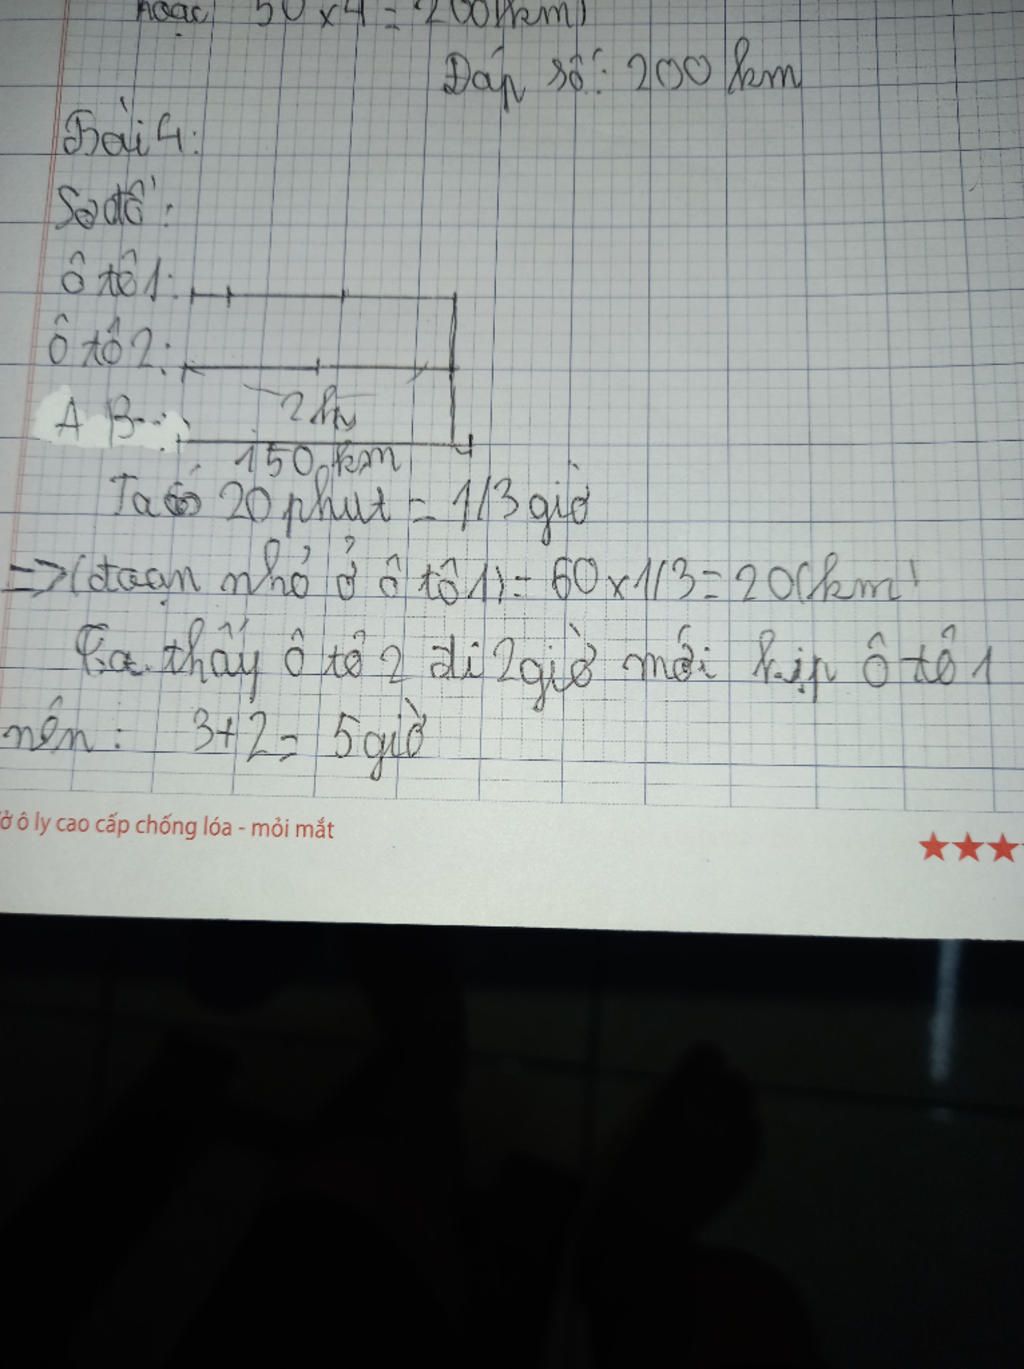 hoặc 50 x 4 = 200(km)
Đáp số: 200 km
Bài 4:
Sơ đồ:
Ô tô 1:
Ô tô 2:
2h
A B
150 km
Ta có 20 phút = 1/3 giờ
=> (đoạn nhỏ ở ô tô 1) = 60 x 1/3 = 20(km)
Ta thấy ô tô 2 đi 2 giờ mới kịp ô tô 1
nên: 3+2 = 5 giờ
ở ô ly cao cấp chống lóa - mỏi mắt